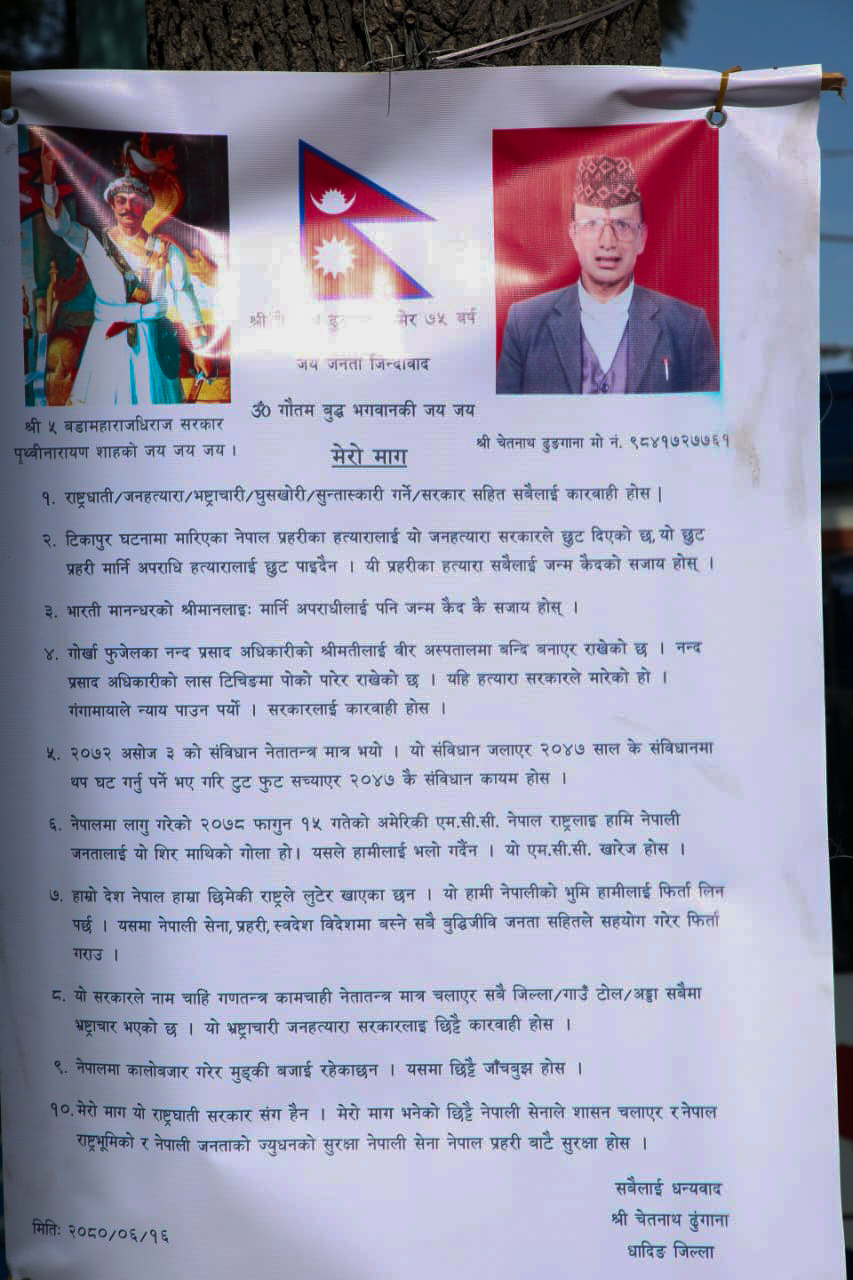 श्री ५ वर्ष
जय जनता जिन्दावाद
ॐ गौतम बुद्ध भगवानकी जय जय
श्री ५ बडामहाराजधिराज सरकार
पृथ्वीनारायण शाहको जय जय जय ।
श्री चेतनाथ ढुङगाना मो नं. ९८४१७२७७६१
मेरो माग
१. राष्ट्रघाती/जनहत्यारा/भष्ट्राचारी/घुसखोरी/सुन्तास्कारी गर्ने/सरकार सहित सबैलाई कारवाही होस |
२. टिकापुर घटनामा मारिएका नेपाल प्रहरीका हत्यारालाई यो जनहत्यारा सरकारले छुट दिएको छ, यो छुट
प्रहरी मार्नि अपराधि हत्यारालाई छुट पाइदैन । यी प्रहरीका हत्यारा सबैलाई जन्म कैदको सजाय होस् ।
३. भारती मानन्धरको श्रीमानलाइः मार्नि अपराधीलाई पनि जन्म कैद कै सजाय होस् ।
४. गोर्खा फुजेलका नन्द प्रसाद अधिकारीको श्रीमतीलाई वीर अस्पतालमा बन्दि बनाएर राखेको छ । नन्द
प्रसाद अधिकारीको लास टिचिङमा पोको पारेर राखेको छ । यहि हत्यारा सरकारले मारेको हो ।
गंगामायाले न्याय पाउन पर्यो । सरकारलाई कारवाही होस ।
५. २०७२ असोज ३ को संविधान नेतातन्त्र मात्र भयो । यो संविधान जलाएर २०४७ साल के संविधानमा
थप घट गर्नु पर्ने भए गरि टुट फुट सच्याएर २०४७ कै संविधान कायम होस ।
६. नेपालमा लागु गरेको २०७८ फागुन १५ गतेको अमेरिकी एम.सी.सी. नेपाल राष्ट्रलाइ हामि नेपाली
जनतालाई यो शिर माथिको गोला हो। यसले हामीलाई भलो गर्दैन । यो एम.सी.सी. खारेज होस ।
७. हाम्रो देश नेपाल हाम्रा छिमेकी राष्ट्रले लुटेर खाएका छन । यो हामी नेपालीको भुमि हामीलाई फिर्ता लिन
पर्छ । यसमा नेपाली सेना, प्रहरी, स्वदेश विदेशमा बस्ने सबै बुद्धिजीवि जनता सहितले सहयोग गरेर फिर्ता
गराउ ।
८. यो सरकारले नाम चाहिं गणतन्त्र कामचाही नेतातन्त्र मात्र चलाएर सबै जिल्ला/गाउँ टोल/अड्डा सबैमा
भ्रष्ट्राचार भएको छ । यो भ्रष्ट्राचारी जनहत्यारा सरकारलाइ छिट्टै कारवाही होस ।
९. नेपालमा कालोबजार गरेर मुड्की बजाई रहेकाछन । यसमा छिट्टै जाँचबुझ होस ।
१०. मेरो माग यो राष्ट्रघाती सरकार संग हैन । मेरो माग भनेको छिट्टै नेपाली सेनाले शासन चलाएर र नेपाल
राष्ट्रभूमिको र नेपाली जनताको ज्युधनको सुरक्षा नेपाली सेना नेपाल प्रहरी बाटै सुरक्षा होस ।
सबैलाई धन्यवाद
श्री चेतनाथ ढुंगाना
धादिङ जिल्ला
मितिः २०८०/०६/१६